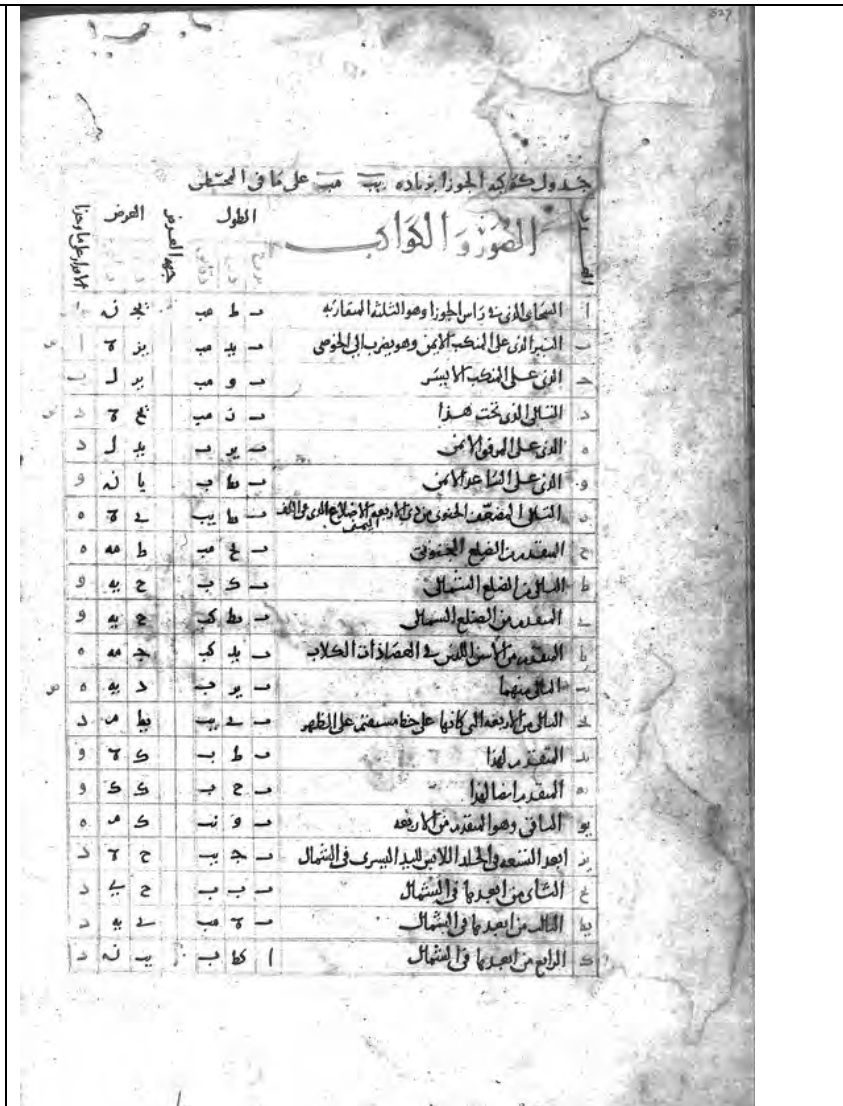 327
جدول كوكبة الجوزا بزيادة يب مب على ما في المجسطى
العدد الصور والكواكب الطول جهة العرض العرض الاقدار على ما وجدنا
بروج درج دقائق
ا السحابى الذى فى راس الجوزا وهو الثلثة المتقاربة ب ط مب يج ن
ب النير الذى على المنكب الايمن وهو يضرب الى الخوصى ب يد مب يز ه ا ص
ج الذى على المنكب الايسر ب و مب يز ل ب
د التالى الذى تحت هذا ب ز مب يح ه د ص
ه الذى على المرفق الايمن ب يز ب يد ل د
و الذى على الساعد الايمن ب يط ب يا ن و
ز التالى المضعف الجنوبى من ذى الاربعة الاضلاع الذى فى الكف اليمنى ب يط يب ى ه ه
ح المتقدم من الضلع الجنوبى ب يح مب ط مه ه
ط التالى من الضلع الشمالى ب ك ب ح يه و
ى المتقدم من الضلع الشمالى ب يط كب ح يه و
يا المتقدم من الاثنين اللذين فى العصا ذات الكلاب ب يد كب ج مه ه
يب التالى منهما ب يز ب د يه ه ص
يج التالى من الاربعة التى كانها على خط مستقيم على الظهر ب ى يب يط م د
يد المتقدم لهذا ب ط ب ك ه و
يه المتقدم ايضا لهذا ب ح ب ك ك و
يو الباقى وهو المتقدم من الاربعة ب و نب ك م ه
يز ابعد التسعة فى الجلد اللابس لليد اليسرى فى الشمال ب ج يب ح ه د
يح الثانى من ابعدها فى الشمال ب ب ب ح ى د
يط الثالث من ابعدها فى الشمال ب ه مب ى يه د
ك الرابع من ابعدها فى الشمال ا كط ب يب ن د